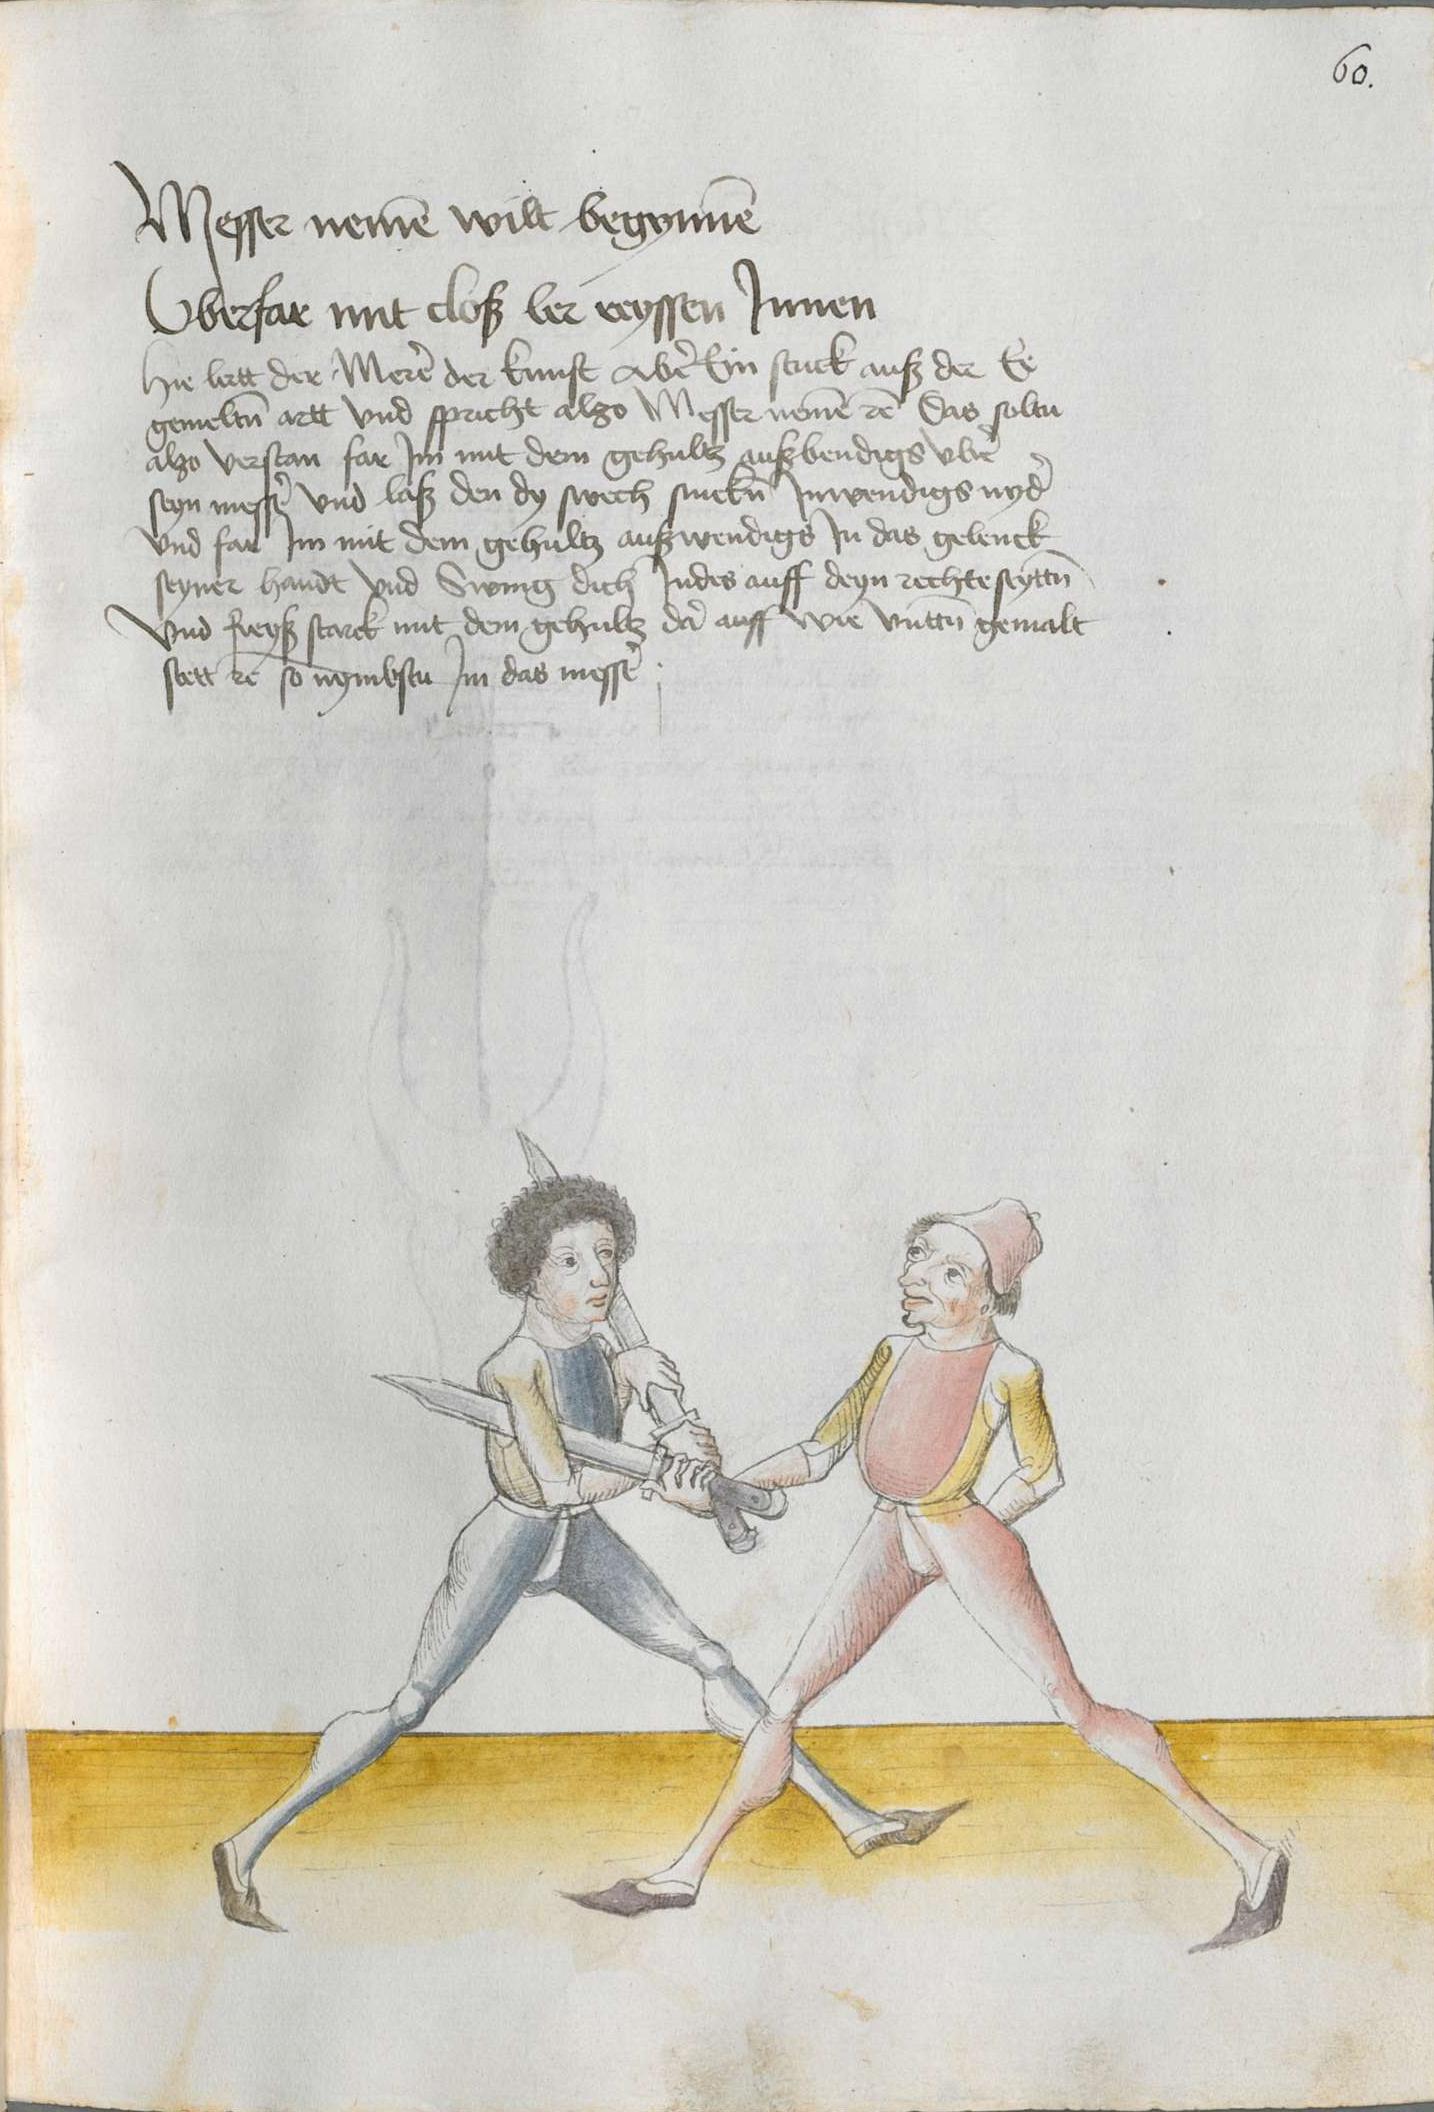 60.
Messer nemē wilt begynnē
Vberfar mit cloß ler reyssen Jnnen
Hie lertt der Merē der kunst abē Ein stuck auß der Ee
gemeltn̄ artt vnd spricht alzo Messer nemē rē Das soltu
alzo verstan far Jm mit dem gehultz außbendigs vbē
seyn messē vnd laß den dy swech sinckn̄ Jnwendigs nyd̄
vnd far Jm mit dem gehultz außwendigs Jn das gelenck
seyner handt vnd Swing dich Jndes auff deyn rechte seyttn̄
Vnd reyß starck mit dem gehultz dā auff wie vnttn̄ gemalt
stett rē so nymbstu Jm das messē